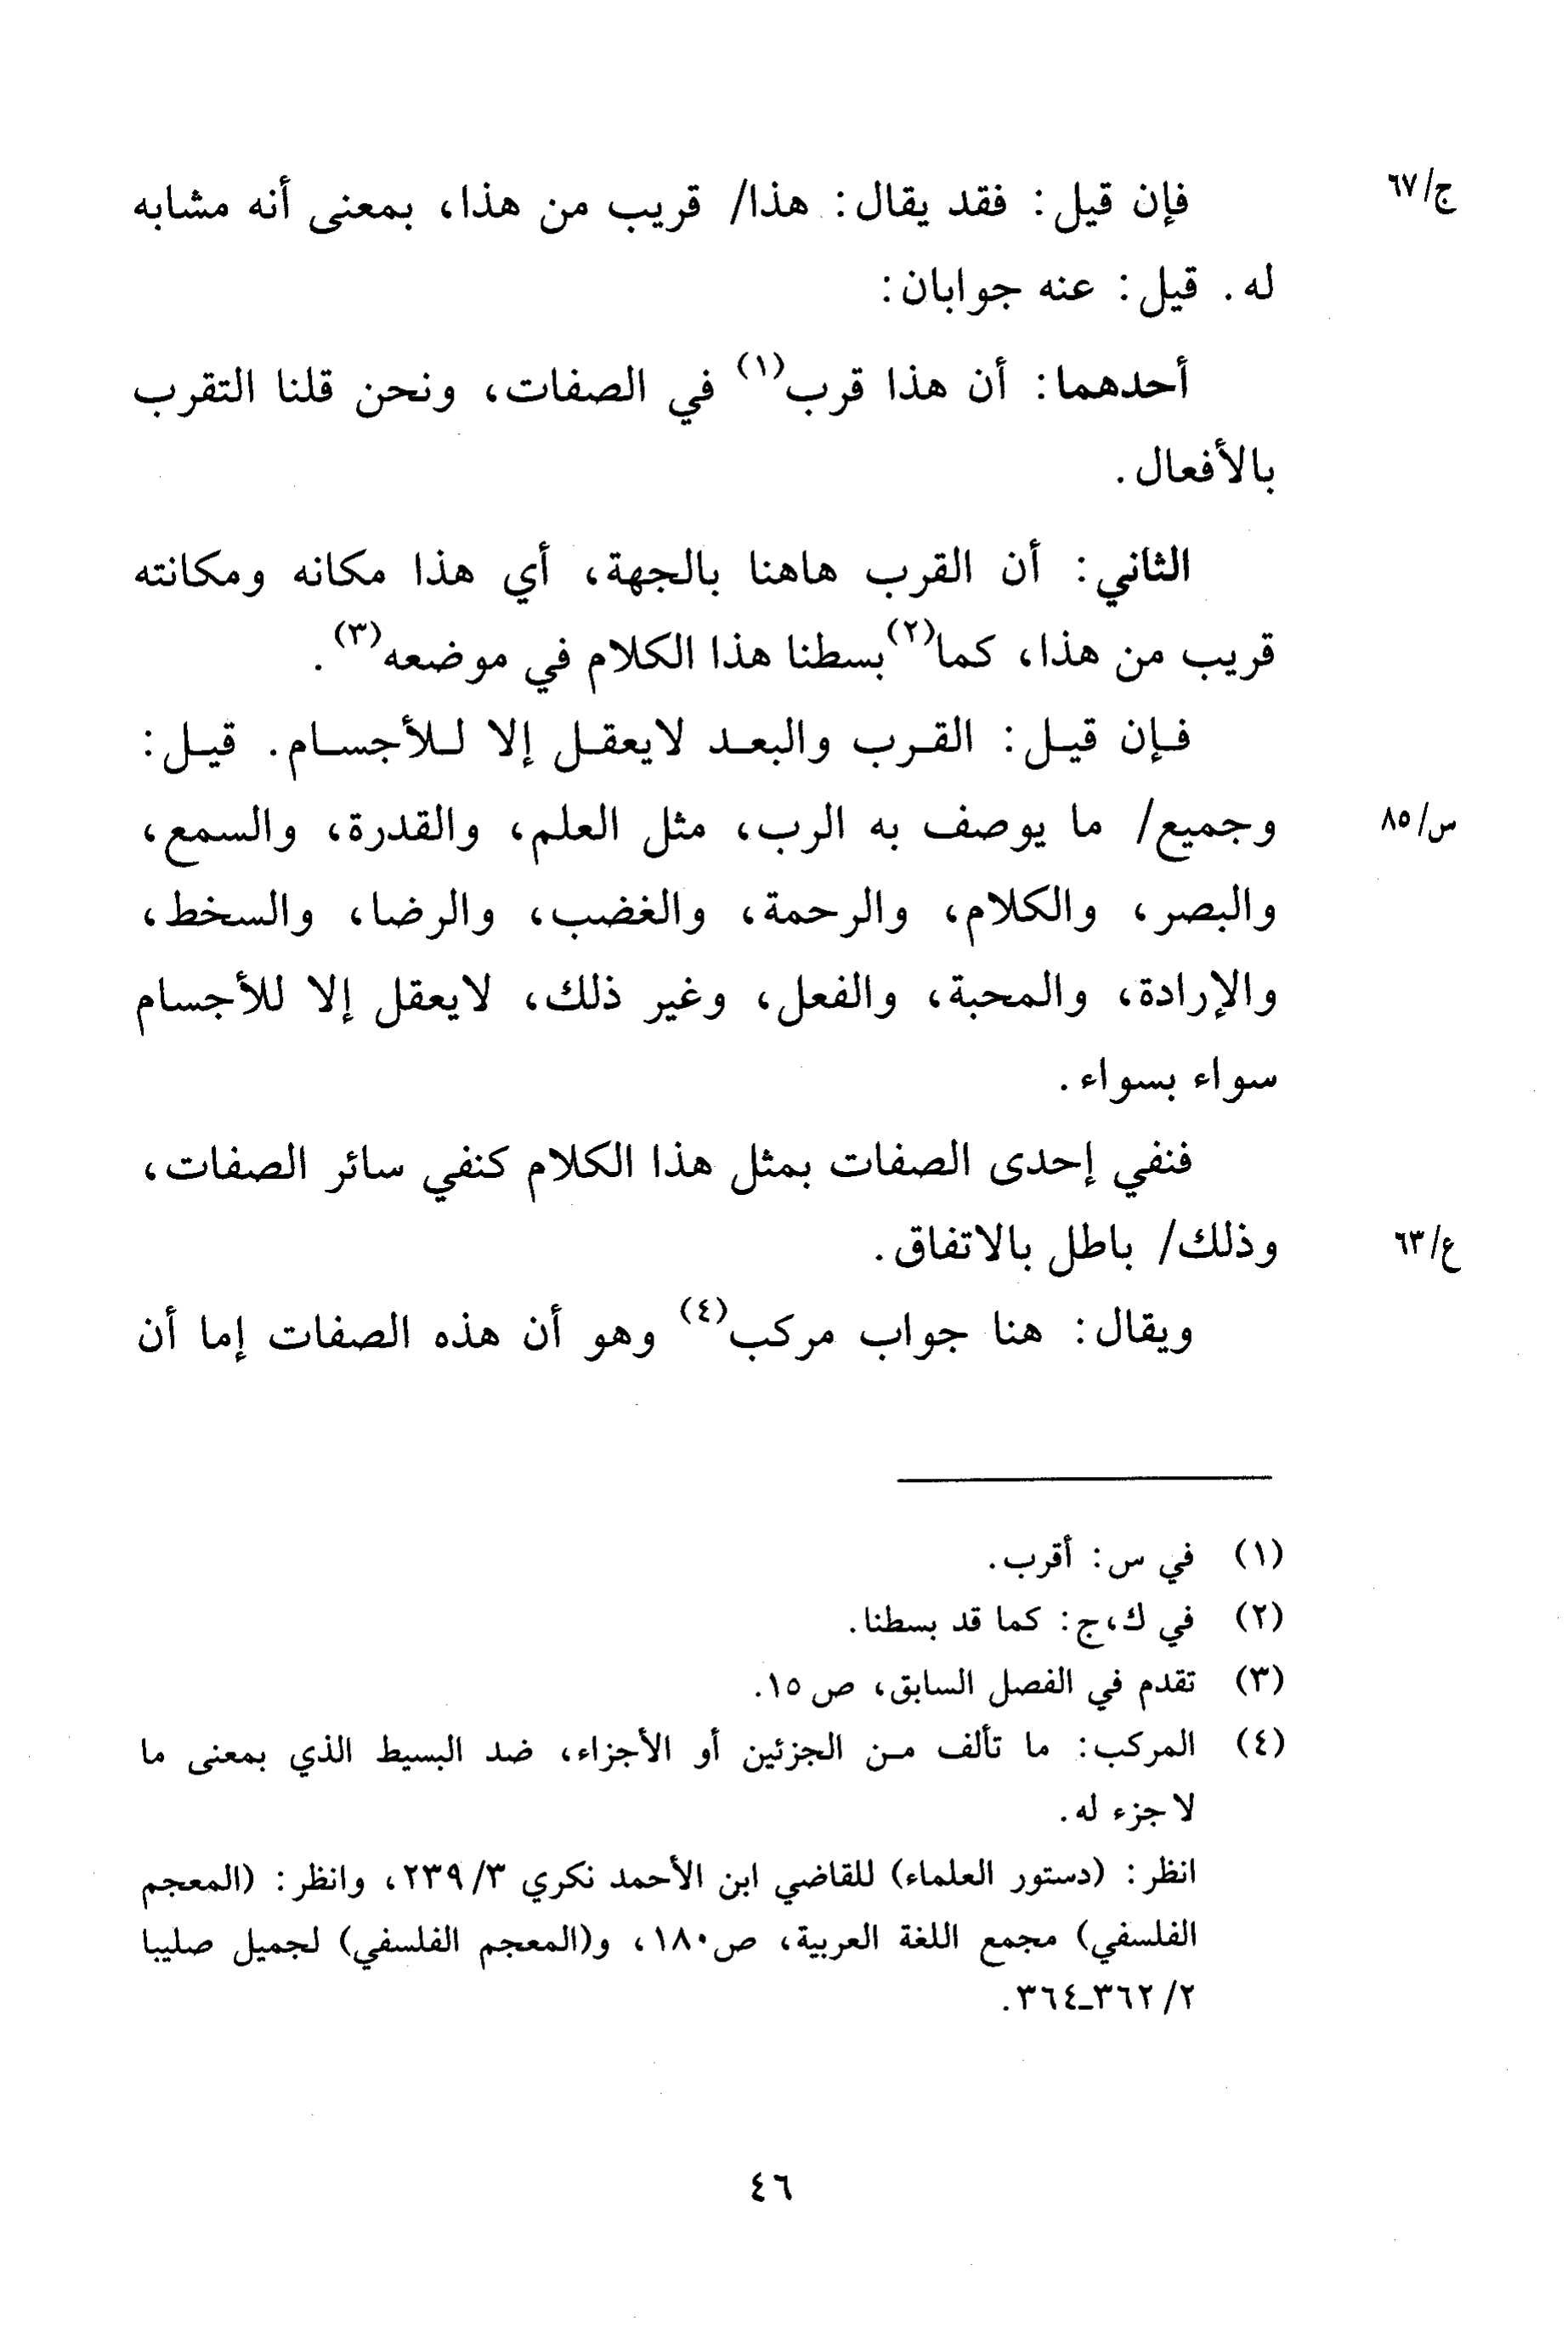 ج/٦٧
فإن قيل: فقد يقال: هذا/ قريب من هذا، بمعنى أنه مشابه
له. قيل: عنه جوابان:
أحدهما: أن هذا قرب(١) في الصفات، ونحن قلنا التقرب
بالأفعال.
الثاني: أن القرب هاهنا بالجهة، أي هذا مكانه ومكانته
قريب من هذا، كما(٢) بسطنا هذا الكلام في موضعه(٣).
فإن قيل: القرب والبعد لايعقل إلا للأجسام. قيل:
س/٨٥
وجميع/ ما يوصف به الرب، مثل العلم، والقدرة، والسمع،
والبصر، والكلام، والرحمة، والغضب، والرضا، والسخط،
والإرادة، والمحبة، والفعل، وغير ذلك، لايعقل إلا للأجسام
سواء بسواء.
فنفي إحدى الصفات بمثل هذا الكلام كنفي سائر الصفات،
ع/٦٣
وذلك/ باطل بالاتفاق.
ويقال: هنا جواب مركب(٤) وهو أن هذه الصفات إما أن
(١) في س: أقرب.
(٢) في ك،ج: كما قد بسطنا.
(٣) تقدم في الفصل السابق، ص١٥.
(٤) المركب: ما تألف من الجزئين أو الأجزاء، ضد البسيط الذي بمعنى ما
لاجزء له.
انظر: (دستور العلماء) للقاضي ابن الأحمد نكري ٣/ ٢٣٩، وانظر: (المعجم
الفلسفي) مجمع اللغة العربية، ص١٨٠، و(المعجم الفلسفي) لجميل صليبا
٢/ ٣٦٢ـ٣٦٤.
٤٦